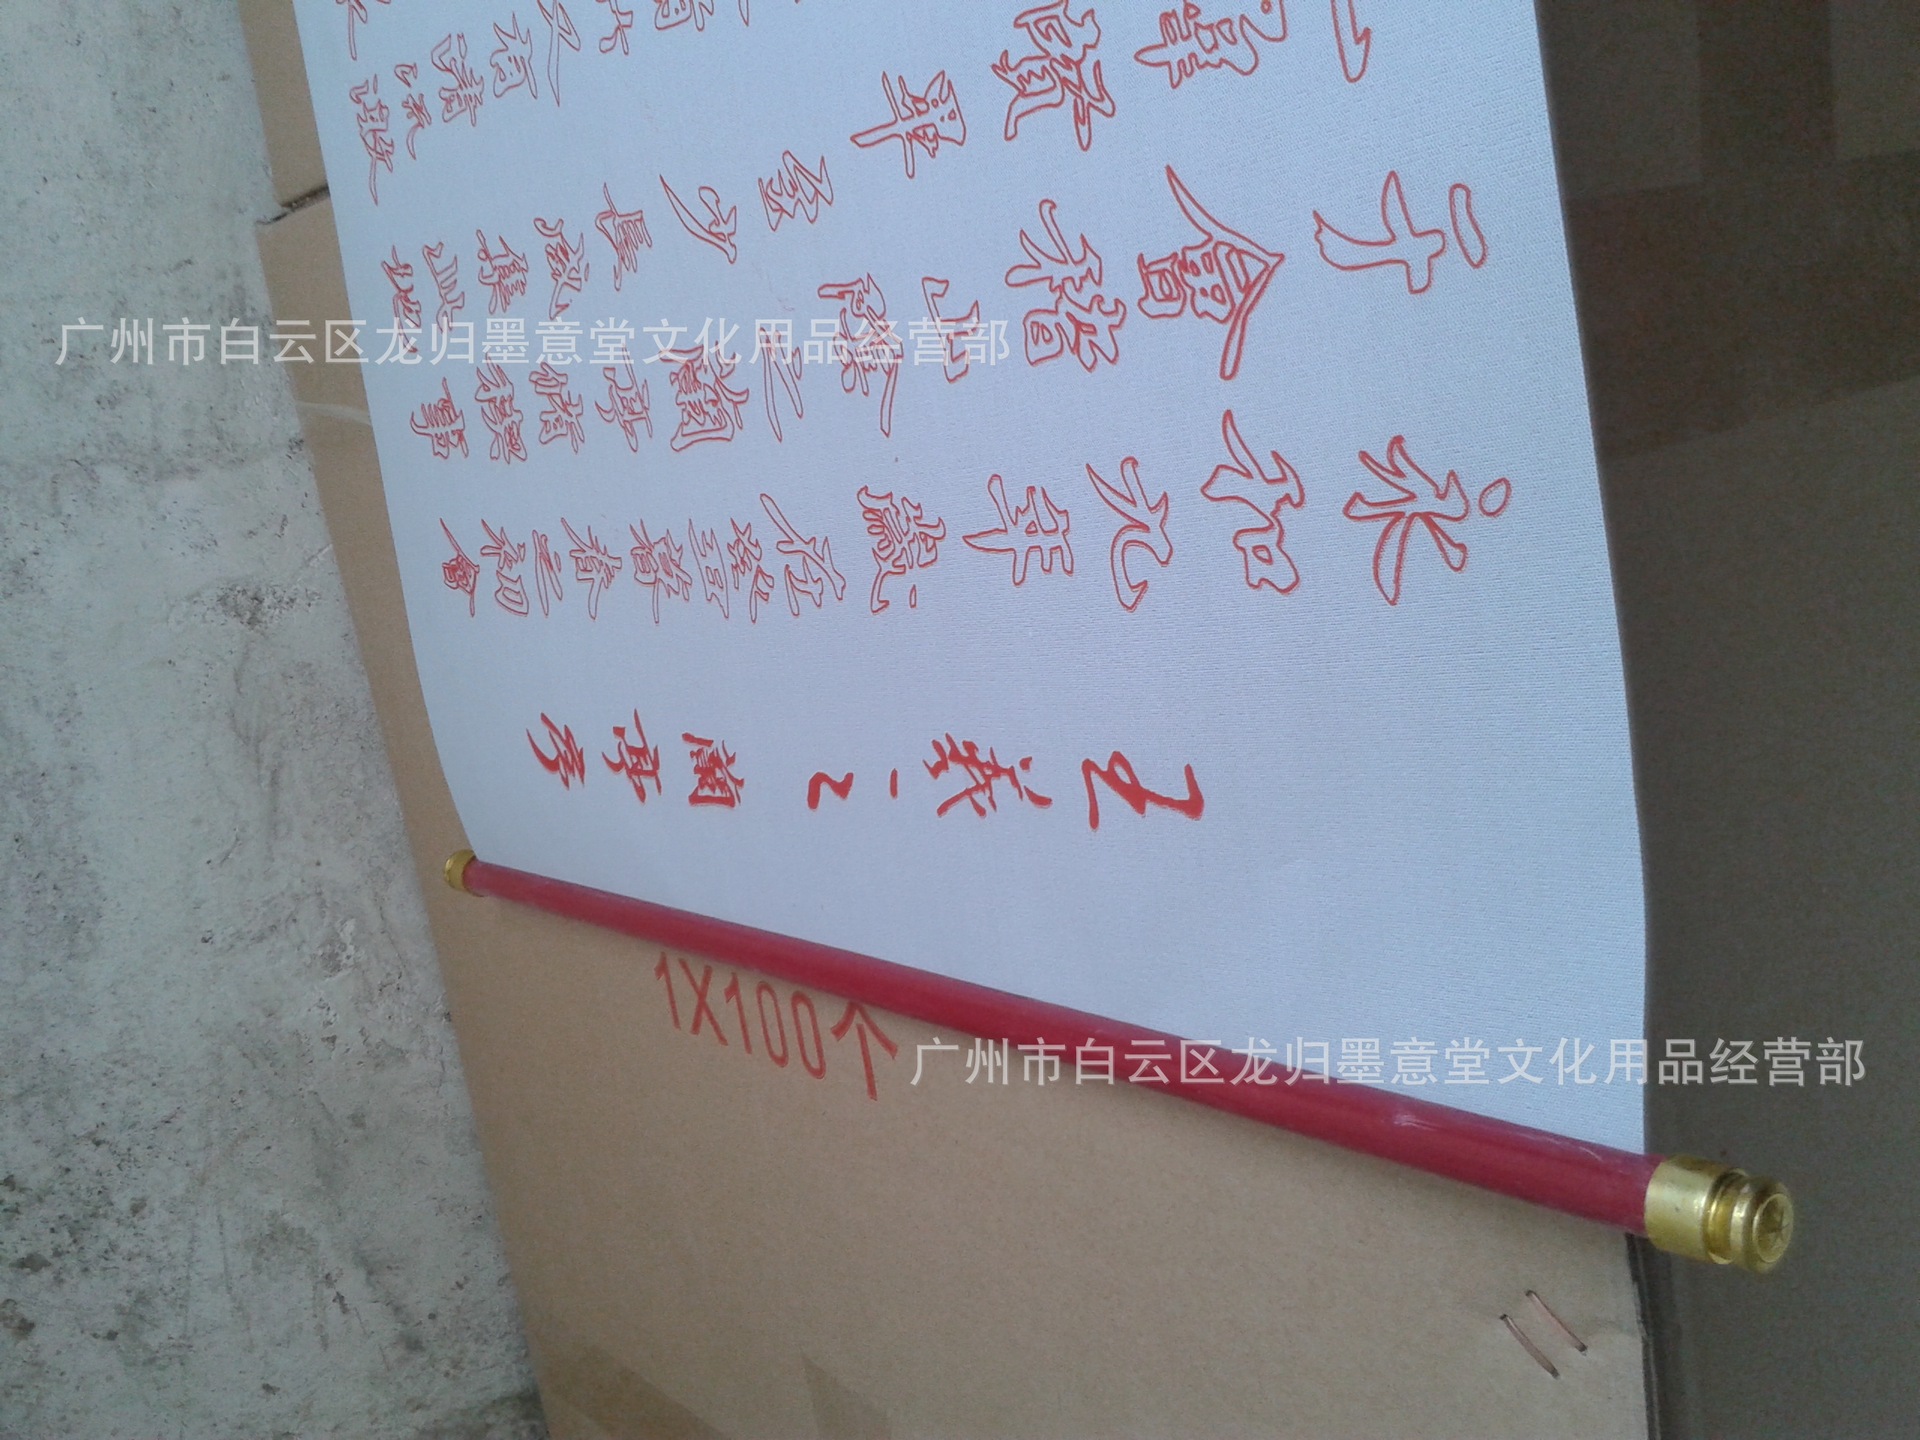 王羲之蘭亭序
永和九年歲在癸丑暮春之初會
于會稽山陰之蘭亭脩稧事
群賢畢至少長咸集此地
又有清流激
1X100个
广州市白云区龙归墨意堂文化用品经营部
广州市白云区龙归墨意堂文化用品经营部